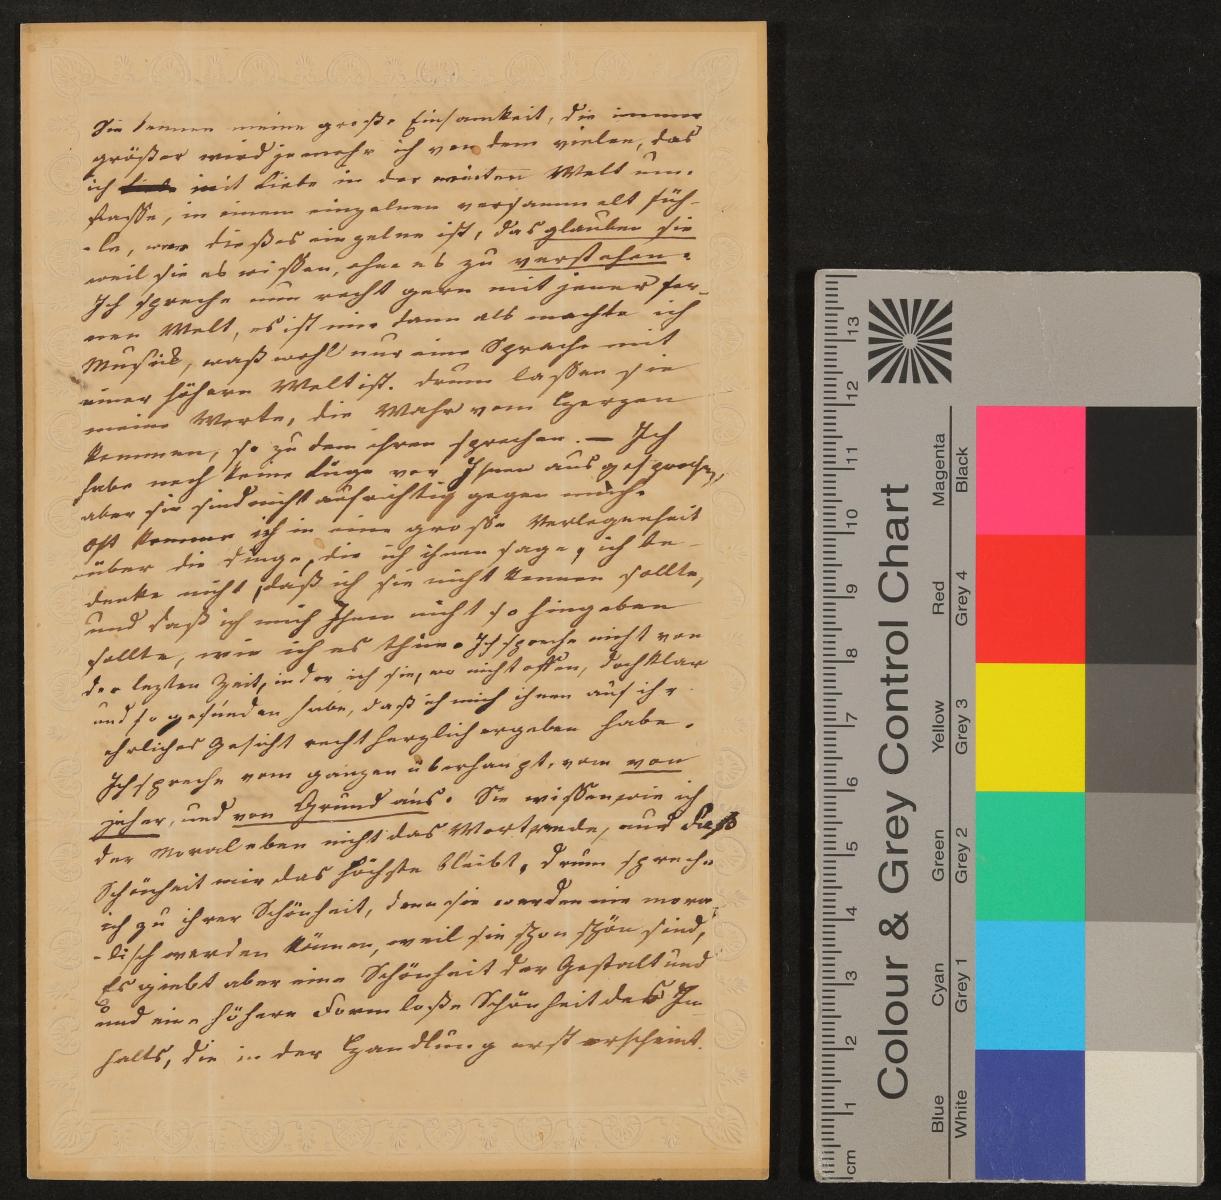 Sie kennen meine große Einsamkeit, die immer
größer wird jemehr ich von dem vielen, das
ich mit Liebe in der weiten Welt um-
fasse, in einem einzelnen versammelt füh-
-le, wer dießes einzelne ist, das glauben sie
weil sie es wissen, ohne es zu verstehen.
Ich spreche nun recht gern mit jener fer-
nen Welt, es ist mir dann als machte ich
Musick, waß wohl nur eine Sprache mit
einer höhern Welt ist. drum lassen sie
meine Worte, die Wahr vom Herzen
kommen, so zu dem ihren sprechen. — Ich
habe noch keine Lüge vor Ihnen ausgesprochen,
aber sie sind nicht aufrichtig gegen mich.
Oft komme ich in eine grosse Verlegenheit
über die Dinge, die ich ihnen sage, ich be-
denke nicht, daß ich sie nicht kennen sollte,
und daß ich mich Ihnen nicht so hingeben
sollte, wie ich es thue. Ich spreche nicht von
der lezten Zeit, in der ich sie, wo nicht offen, doch klar
und so gefunden habe, daß ich mich ihnen auf ihr
ehrliches Gesicht recht herzlich ergeben habe.
Ich spreche vom ganzen überhaupt, vom von
jeher, und von Grund aus. Sie wissen wie ich
der Moral eben nicht das Wort rede, und daß
Schönheit mir das höchste bleibt, drum spreche
ich zu ihrer Schönheit, denn sie werden nie mora
-lisch werden können, weil sie schon schön sind,
Es giebt aber eine Schönheit der Gestalt und
und eine höhere Formloße Schönheit des In-
halts, die in der Handlung erst erscheint.
Colour & Grey Control Chart
Blue Cyan Green Yellow Red Magenta
White Grey 1 Grey 2 Grey 3 Grey 4 Black
cm 1 2 3 4 5 6 7 8 9 10 11 12 13